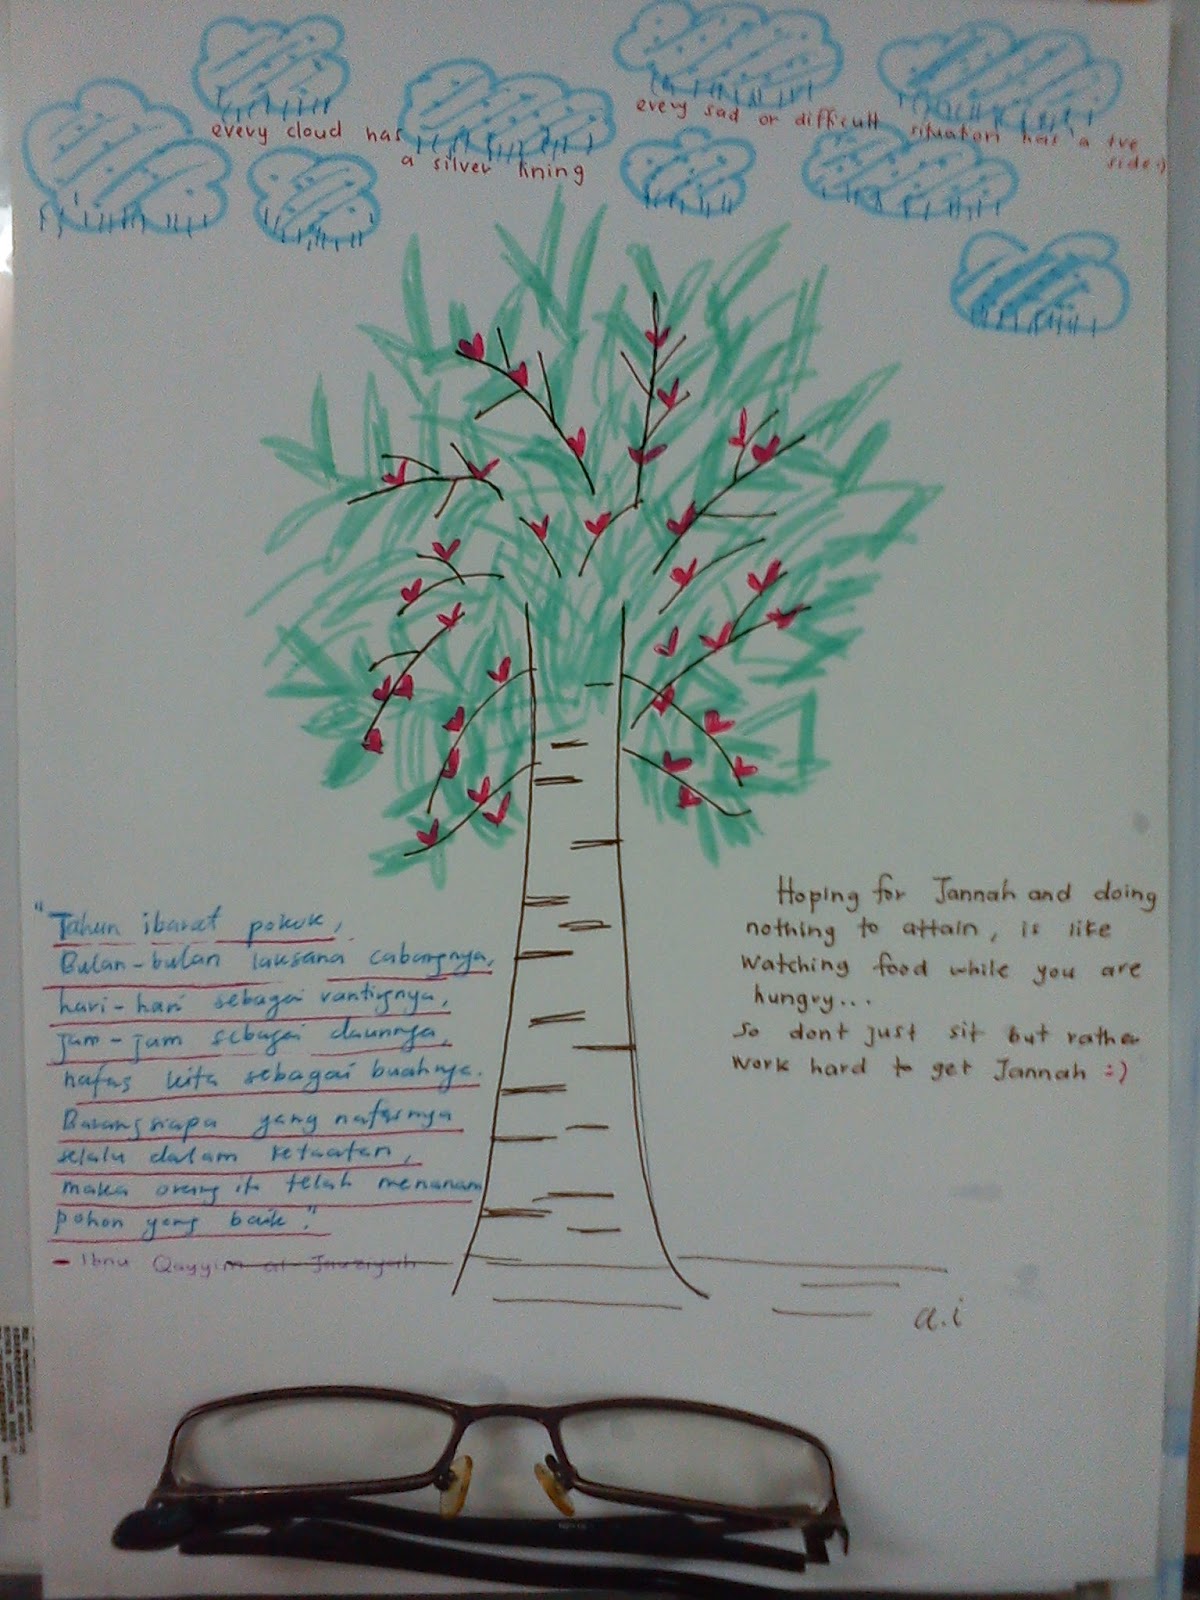 every cloud has
a silver lining
every sad or difficult situation has a +ve
side :)
"Tahun ibarat pokok,
Bulan-bulan laksana cabangnya,
hari-hari sebagai rantingnya,
jam-jam sebagai daunnya,
nafas kita sebagai buahnya.
Barangsiapa yang nafasnya
selalu dalam ketaatan,
maka orang itu telah menanam
pohon yang baik."
- Ibnu Qayyim al-Jauziyah
Hoping for Jannah and doing
nothing to attain, is like
watching food while you are
hungry...
so dont just sit but rather
work hard to get Jannah :)
a.i